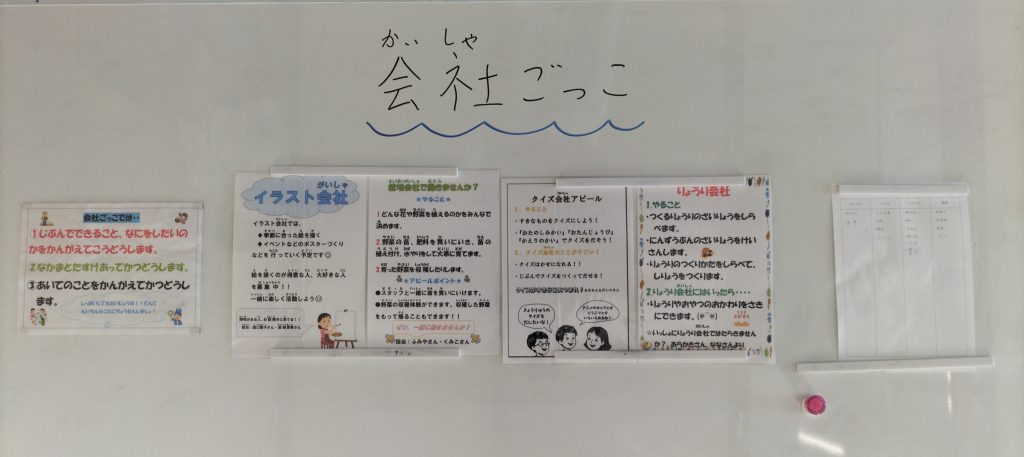 会社ごっこ
会社ごっこでは‥
①じぶんでできること、なにをしたいの
かをかんがえてこうどうします。
②なかまとたすけあってかつどうします。
③あいてのことをかんがえてかつどうし
ます。
イラスト会社
イラスト会社では、
◆季節に合った絵を描く
◆イベントなどのポスターづくり
などを行っていく予定です☺
絵を描くのが得意な人、大好きな人
を募集中!!
一緒に楽しく活動しよう☺
農場会社で働きませんか?
★やること★
1どんな花や野菜を植えるのかをみんなで
決めます。
2野菜の苗、肥料を買いにいき、苗の
植え付け、水やりをして大事に育てます。
3育った野菜を収穫したりします。
★アピールポイント★
●スタッフと一緒に苗を買いにいけます。
●野菜の収穫体験ができます。収穫した野菜
をもって帰ることもできます!!
ぜひ、一緒に働きませんか?
担当:ふみやさん・くみこさん
クイズ会社アピール
1、やること
・すきなものをクイズにしよう!
・「おたのしみかい」「おたんじょうび」
「かえりのかい」でクイズをだそう!
2、クイズ会社のここがすごい!
・クイズはかせになれる!!
・じぶんでクイズをつくってだせる!
りょうり会社
1.やること
・つくるりょうりのざいりょうをしら
べます。
・にんずうぶんのざいりょうをけい
さんします。
・りょうりのつくりかたをしらべて、
しりょうをつくります。
2.りょうり会社にはいったら‥‥
・りょうりやおやつのおかわりをさき
にできます。
☆いっしょにりょうり会社ではたらきません
か?